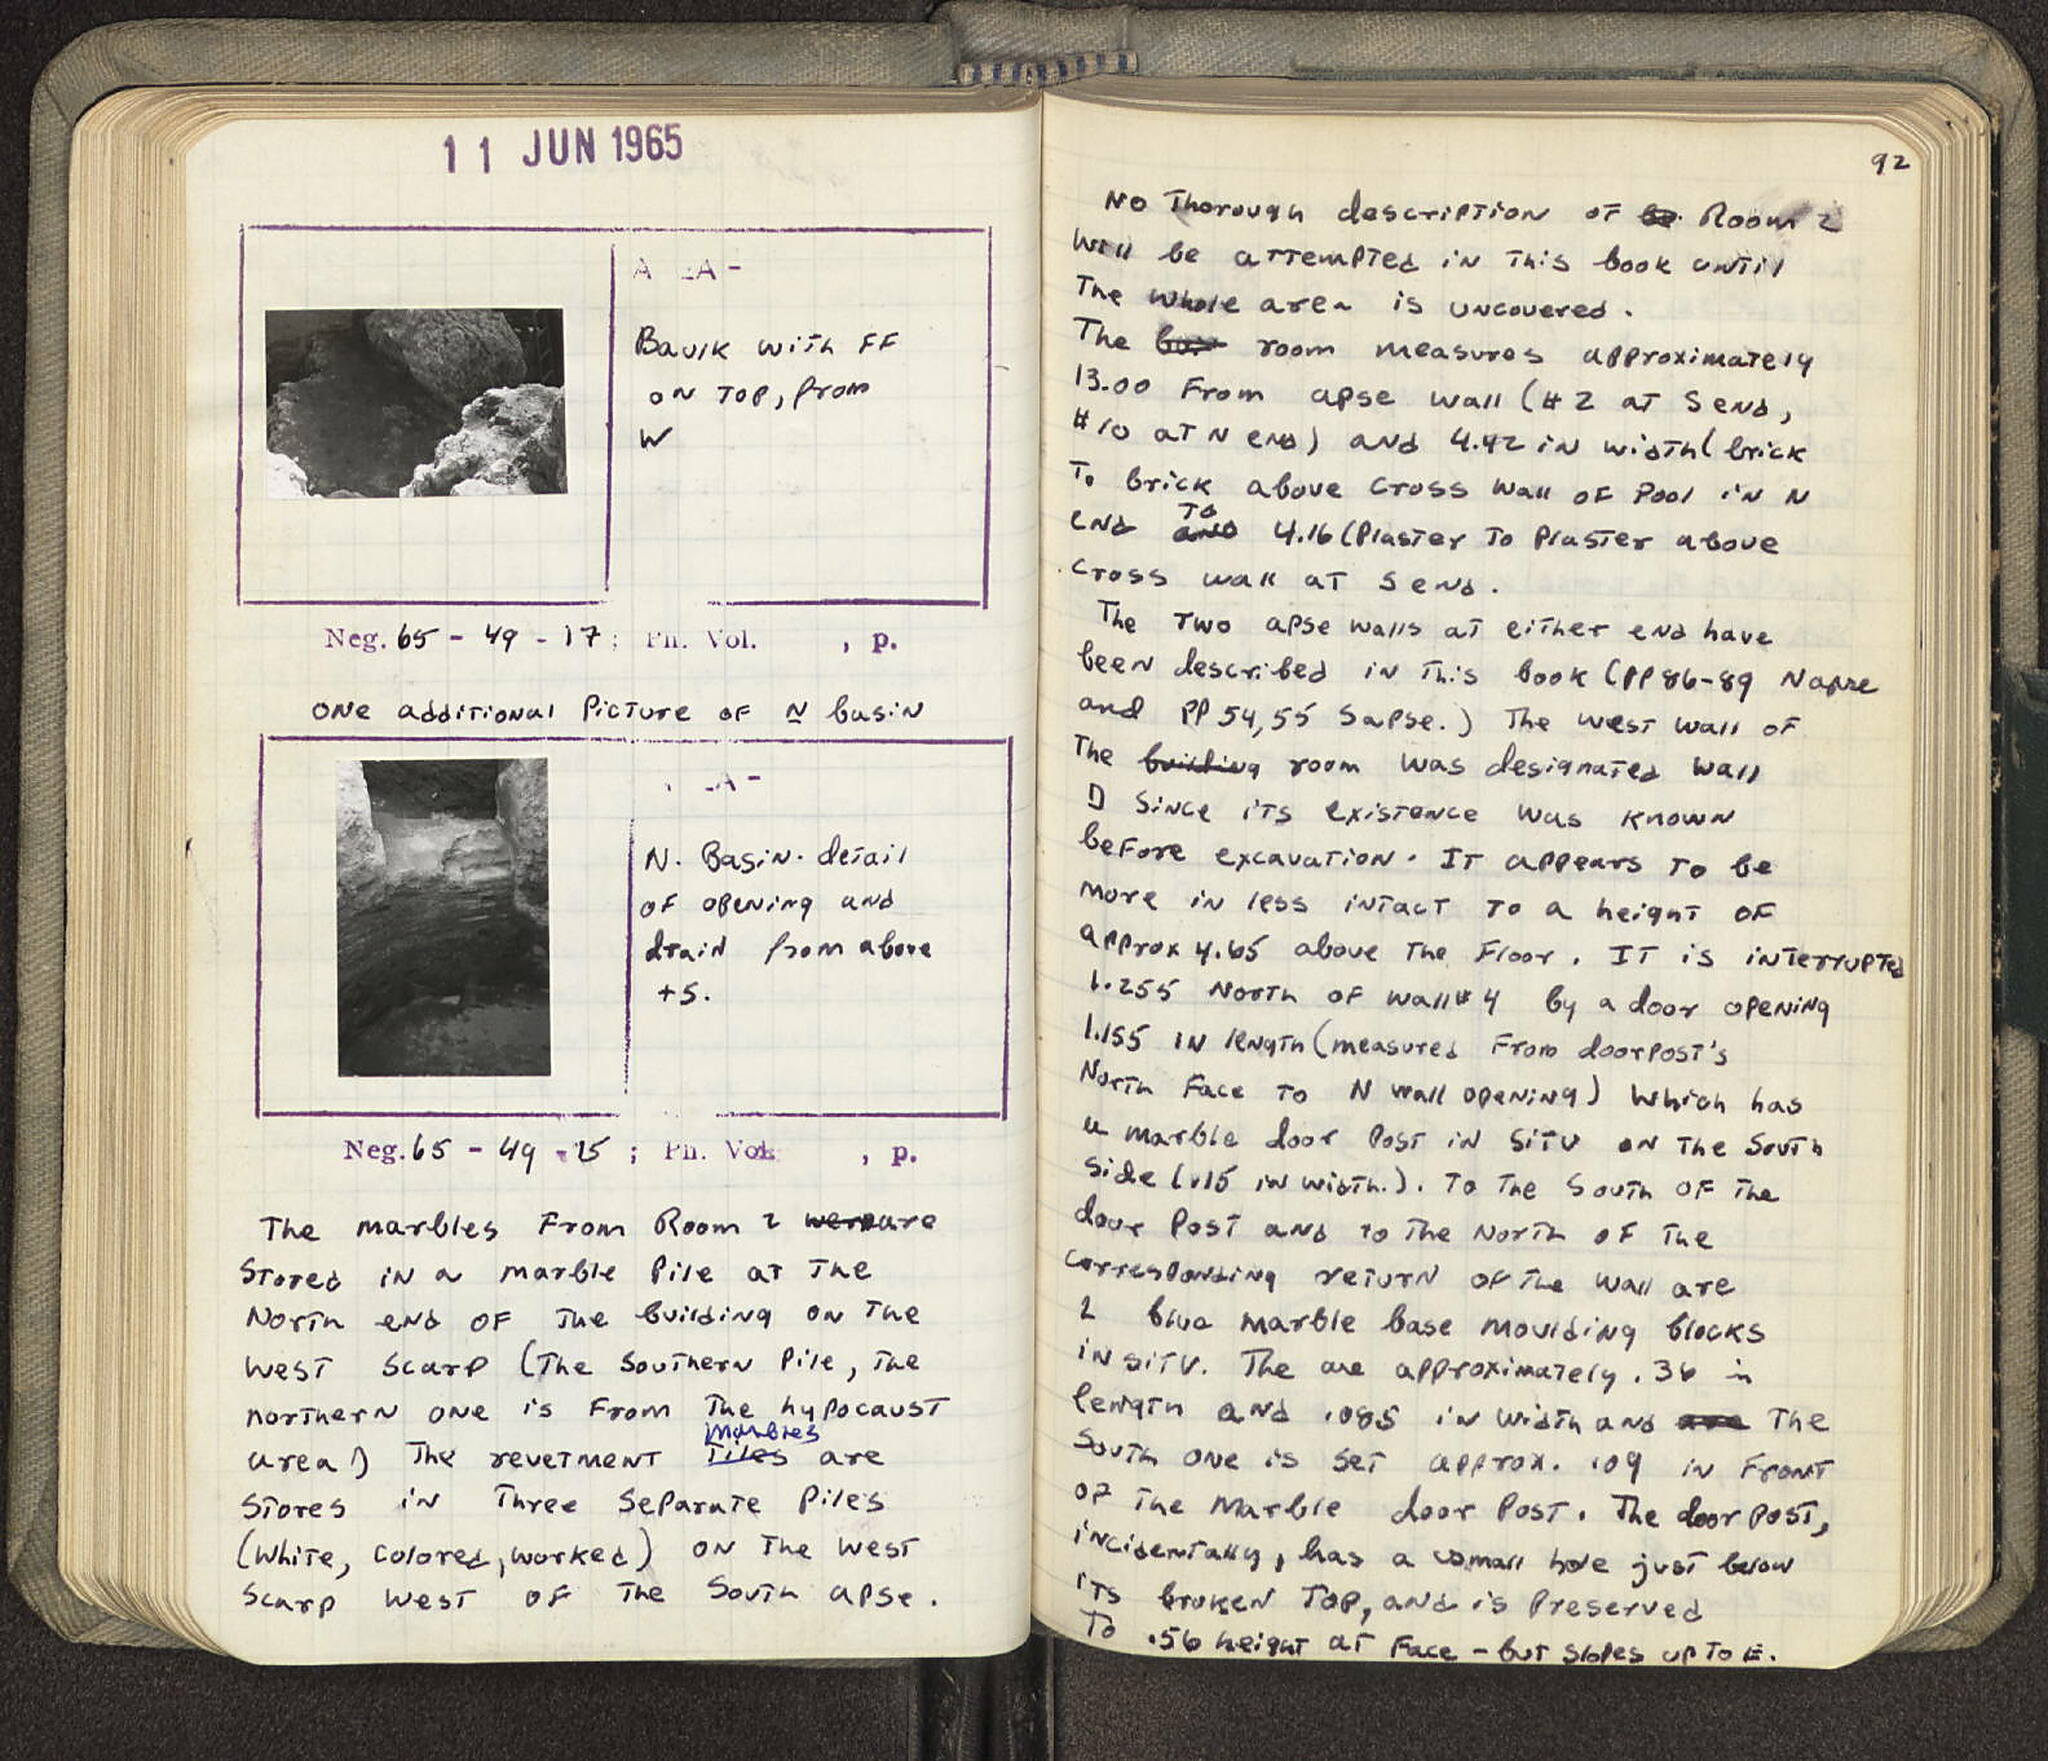 11 JUN 1965
Baulk with FF
on top, from
W
Neg. 65 - 49 - 17; Ph. Vol. , p.
One additional Picture of N basin
N. Basin - detail
of opening and
drain from above
+S.
Neg. 65 - 49 - 15; Ph. Vol. , p.
The marbles From Room 2 were are
Stored in a marble Pile at The
North end of The building on The
West Scarp (The Southern Pile, The
northern one is From The hypocaust
marbles
area!) The revetment Tiles are
Stores in Three Separate Piles
(white, colored, worked) on The West
Scarp West of The South apse.
92
No Thorough description of Room 2
Will be attempted in This book until
The whole area is uncovered.
The room measures approximately
13.00 From apse wall (#2 at S end,
#10 at N end) and 4.42 in width (brick
To brick above cross wall of Pool in N
To
end and 4.16 (Plaster To Plaster above
cross wall at S end.
The Two apse walls at either end have
been described in This book (PP 86-89 N apse
and PP 54,55 S apse.) The West Wall of
The building room was designated Wall
D Since its existence was known
before excavation. It appears to be
more in less intact To a height of
approx 4.65 above The Floor. It is interrupted
1.255 North of wall #4 by a door opening
1.155 in length (measured From doorpost's
North Face To N wall opening) Which has
a marble door Post in Situ on The South
Side (.15 in width.). To The South of The
door Post and to The North of The
corresponding return of The Wall are
2 blue marble base moulding blocks
in situ. The are approximately .36 in
length and .085 in width and are The
South one is set approx. .09 in Front
of The Marble door Post. The door post,
incidentally, has a small hole just below
its broken Top, and is Preserved
To .56 height at Face - but slopes up To E.